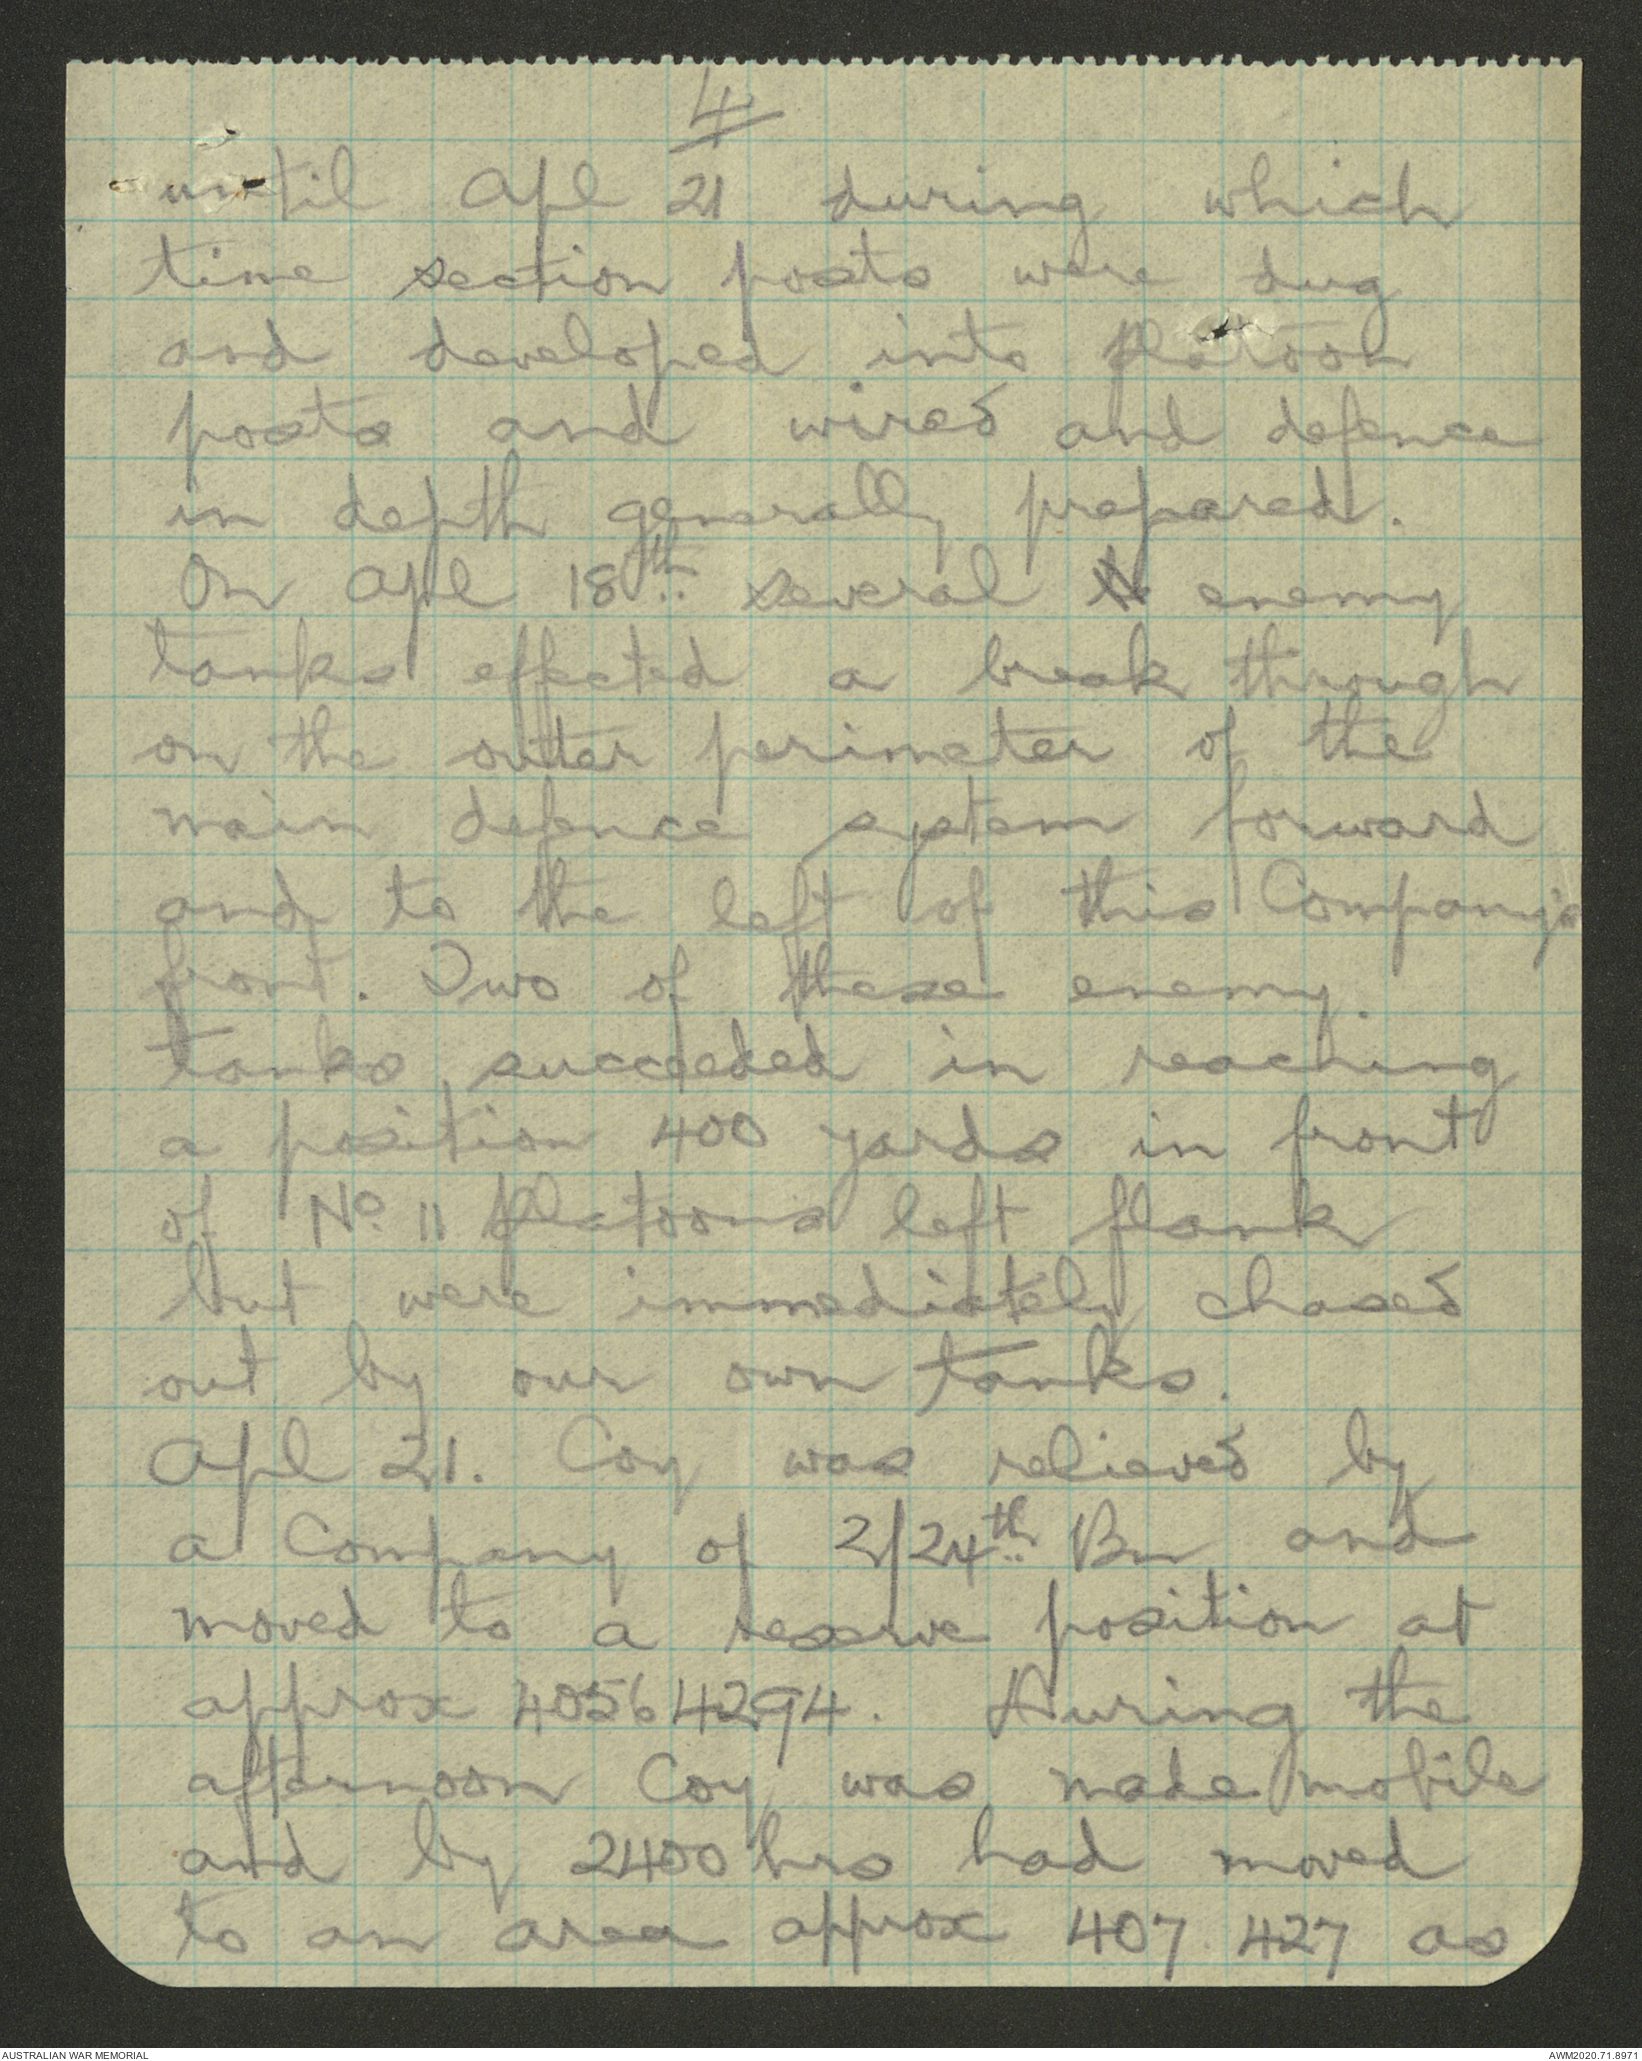 4
until Apl 21 during which
time section posts were dug
and developed into platoon
posts and wired and defence
in depth generally prepared.
On Apl 18th several enemy
tanks effected a break through
on the outter perimeter of the
main defence system forward
and to the left of this Company's
front. Two of these enemy
tanks succeeded in reaching
a position 400 yards in front
of No. 11 Platoons left flank
but were immediately chased
out by our own tanks.
Apl 21. Coy was relieved by
a Company of 2/24th Bn and
moved to a reserve position at
approx 40564294. During the
afternoon Coy was made mobile
and by 2400 hrs had moved
to an area approx 407 427 as
AUSTRALIAN WAR MEMORIAL
AWM2020.71.8971